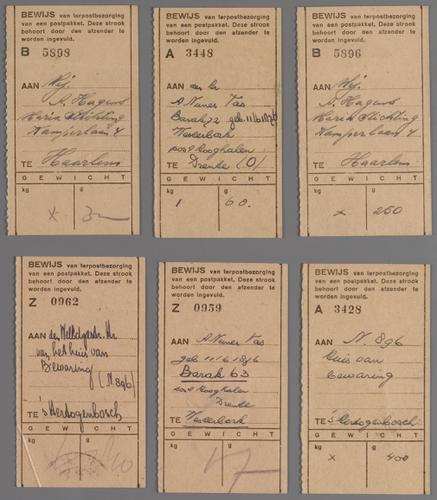 BEWIJS van terpostbezorging
van een postpakket. Deze strook
behoort door den afzender te
worden ingevuld.
B 5898
AAN Wij.
A. Hagens
Maria Stichting
Kamperlaan 4
TE Haarlem
GEWICHT
kg g
x
BEWIJS van terpostbezorging
van een postpakket. Deze strook
behoort door den afzender te
worden ingevuld.
A 3448
AAN den hr
A Nunes Vas
Barak 72 geb. 11/6 1876
Westerbork
post Hooghalen
TE Drente (O)
GEWICHT
kg g
1 60.
BEWIJS van terpostbezorging
van een postpakket. Deze strook
behoort door den afzender te
worden ingevuld.
B 5896
AAN Wij.
A. Hagens
Maria Stichting
Kamperlaan 4
TE Haarlem
GEWICHT
kg g
x 250
BEWIJS van terpostbezorging
van een postpakket. Deze strook
behoort door den afzender te
worden ingevuld.
Z 0962
AAN den WelEdgestr. Hr
van het huis van
Bewaring
(N. 896)
TE 's Hertogenbosch
GEWICHT
kg g
BEWIJS van terpostbezorging
van een postpakket. Deze strook
behoort door den afzender te
worden ingevuld.
Z 0959
AAN A Nunes Vas
geb 11/6 1876
Barak 63
post Hooghalen
Drente
TE Westerbork
GEWICHT
kg g
BEWIJS van terpostbezorging
van een postpakket. Deze strook
behoort door den afzender te
worden ingevuld.
A 3428
AAN N. 896
Huis van
bewaring
TE 's Hertogenbosch
GEWICHT
kg g
x 400